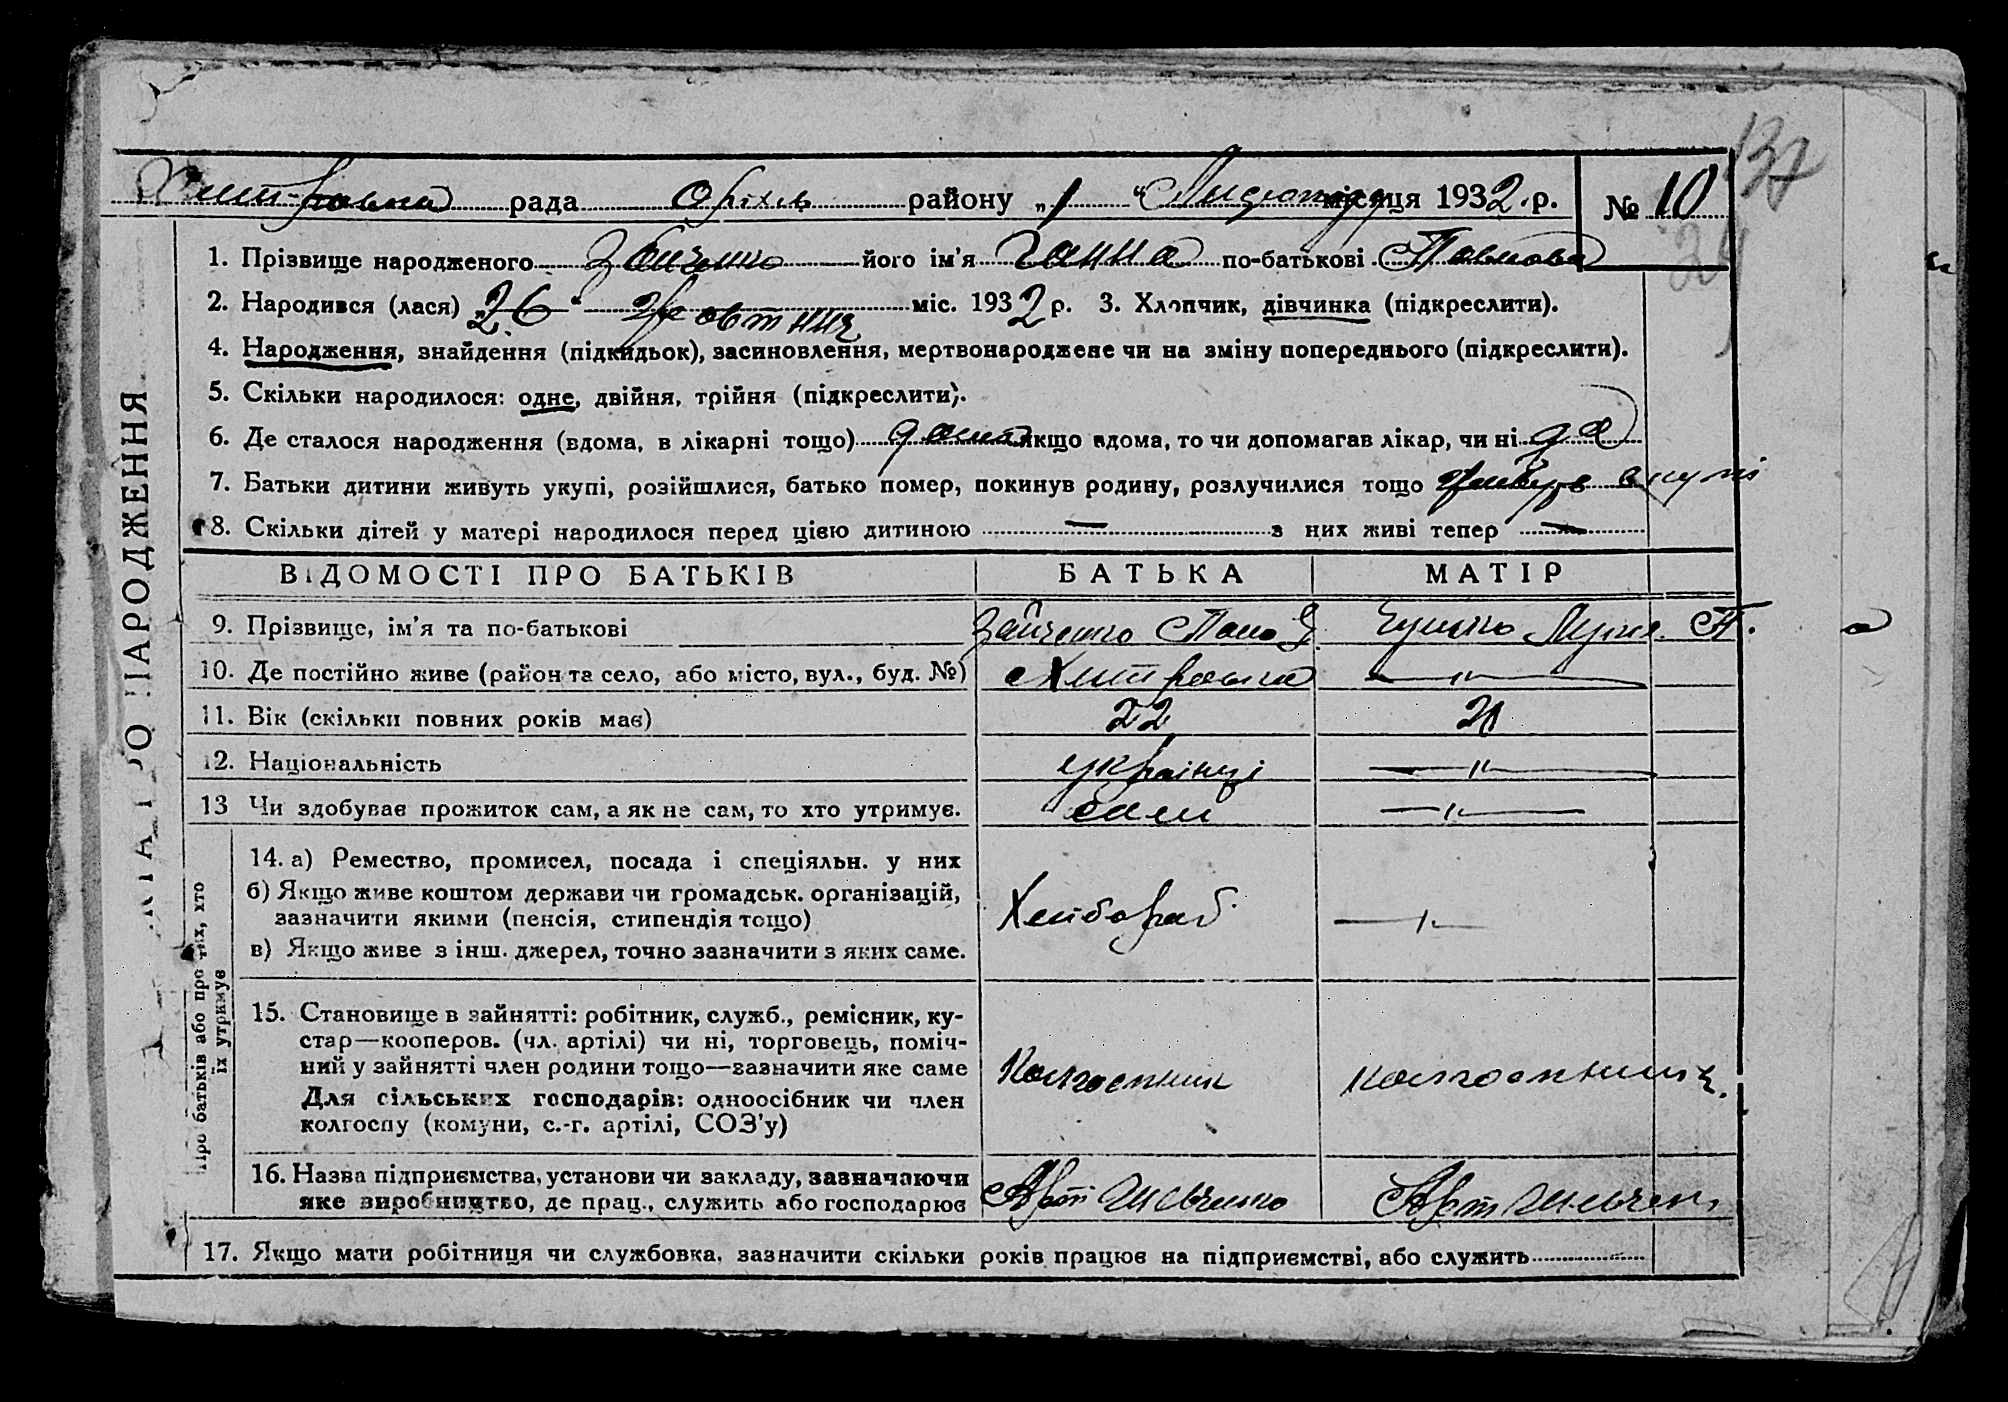 137
рада Оріхів району „1“ Листопада місяця 1932 р. № 10
29
1. Прізвище народженого Зайченко його ім'я Ганна по-батькові Павлова
2. Народився (лася) „26“ Жовтния міс. 1932 р. 3. Хлопчик, дівчинка (підкреслити).
4. Народження, знайдення (підкидьок), засиновлення, мертвонароджене чи на зміну попереднього (підкреслити).
5. Скільки народилося: одне, двійня, трійня (підкреслити).
6. Де сталося народження (вдома, в лікарні тощо) дома якщо вдома, то чи допомагав лікар, чи ні да
7. Батьки дитини живуть укупі, розійшлися, батько помер, покинув родину, розлучилися тощо вкупі
8. Скільки дітей у матері народилося перед цією дитиною — з них живі тепер —
ВІДОМОСТІ ПРО БАТЬКІВ БАТЬКА МАТІР
9. Прізвище, ім'я та по-батькові Зайченко Павло
10. Де постійно живе (район та село, або місто, вул., буд. №) Хитровка —"—
11. Вік (скільки повних років має) 22 21
12. Національність українці —"—
13 Чи здобуває прожиток сам, а як не сам, то хто утримує. сам —"—
14. а) Ремество, промисел, посада і спеціяльн. у них
б) Якщо живе коштом держави чи громадськ. організацій,
зазначити якими (пенсія, стипендія тощо) Хлібороб —"—
в) Якщо живе з інш. джерел, точно зазначити з яких саме.
15. Становище в зайнятті: робітник, служб., ремісник, ку-
стар—кооперов. (чл. артілі) чи ні, торговець, поміч-
ний у зайнятті член родини тощо—зазначити яке саме Колгоспник колгоспниця
Для сільських господарів: одноосібник чи член
колгоспу (комуни, с.-г. артілі, СОЗ'у)
16. Назва підприємства, установи чи закладу, зазначаючи
яке виробництво, де прац., служить або господарює Арт Шевченко Арт Шевченк
17. Якщо мати робітниця чи службовка, зазначити скільки років працює на підприємстві, або служить
НАРОДЖЕННЯ
Про батьків або про тих, хто
їх утримує